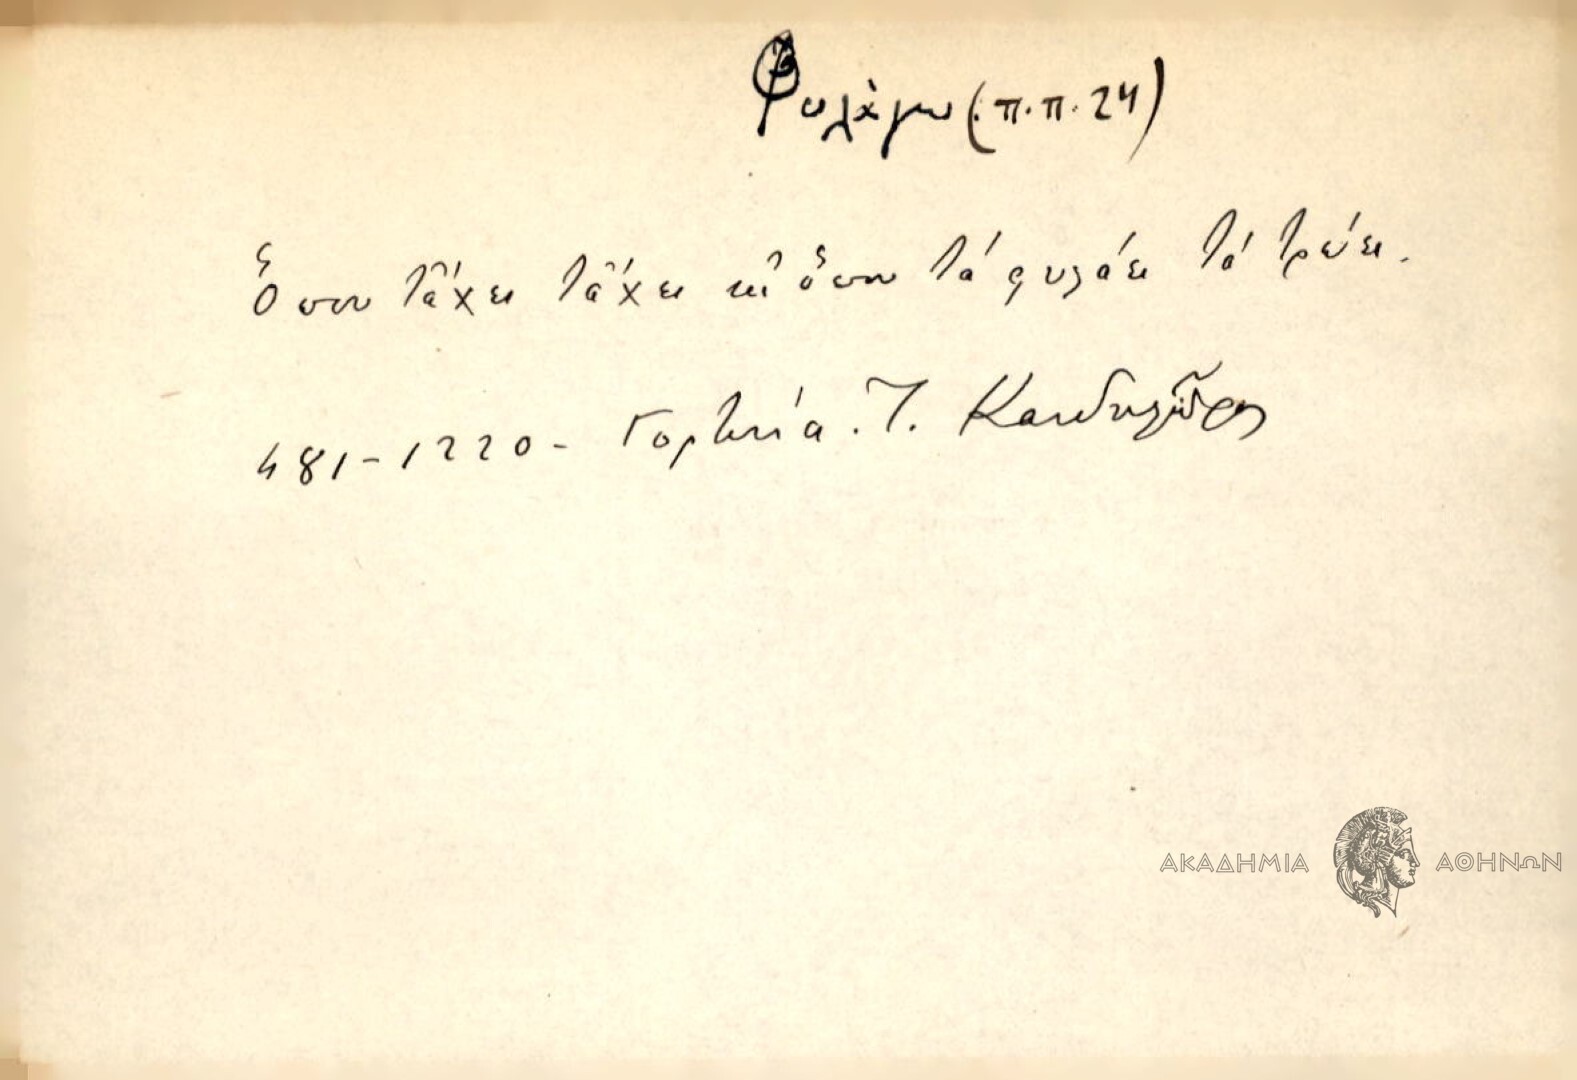 Φυλάγω (π.π. 24)
Ὅπου τἄχει τἄχει κι' ὅπου τά φυλάει τά τρώει.
481-1220- Γορτυνία. Τ. Κανδηλῶρος
ΑΚΑΔΗΜΙΑ ΑΘΗΝΩΝ